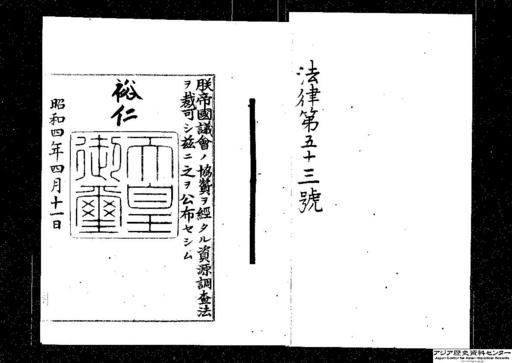 法律第五十三號
朕帝國議會ノ協贊ヲ經タル資源調查法
ヲ裁可シ茲ニ之ヲ公布セシム
裕仁
天皇
御璽
昭和四年四月十一日
アジア歴史資料センター
Japan Center for Asian Historical Records